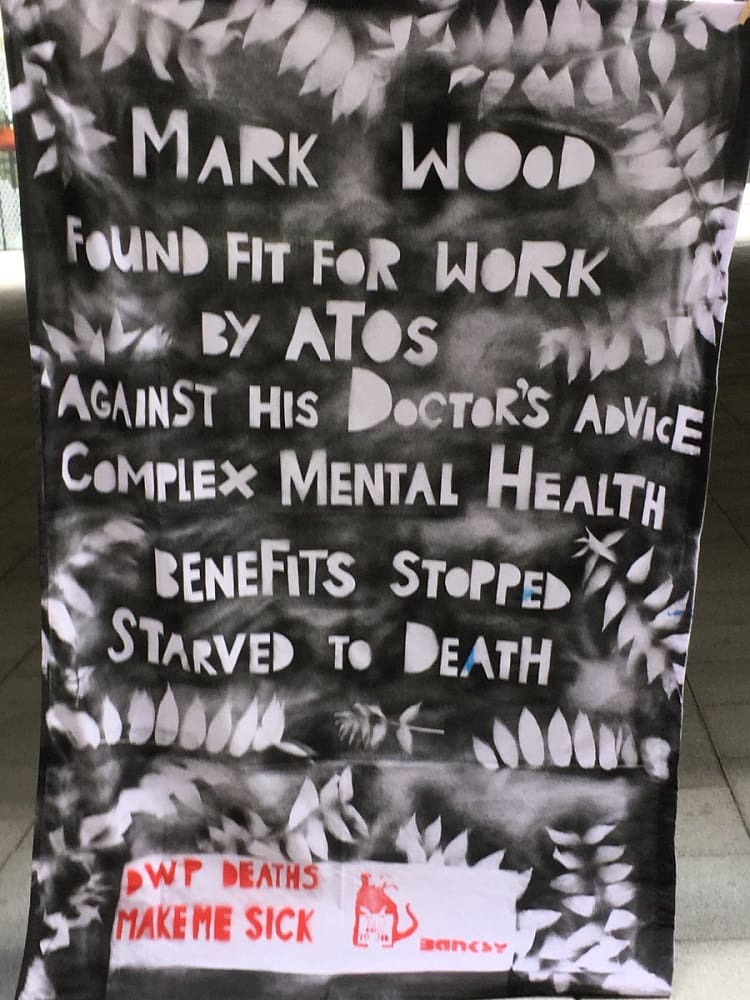 MARK WOOD
FOUND FIT FOR WORK
BY ATOS
AGAINST HIS DOCTOR'S ADVICE
COMPLEX MENTAL HEALTH
BENEFITS STOPPED
STARVED TO DEATH
DWP DEATHS
MAKE ME SICK
BANKSY